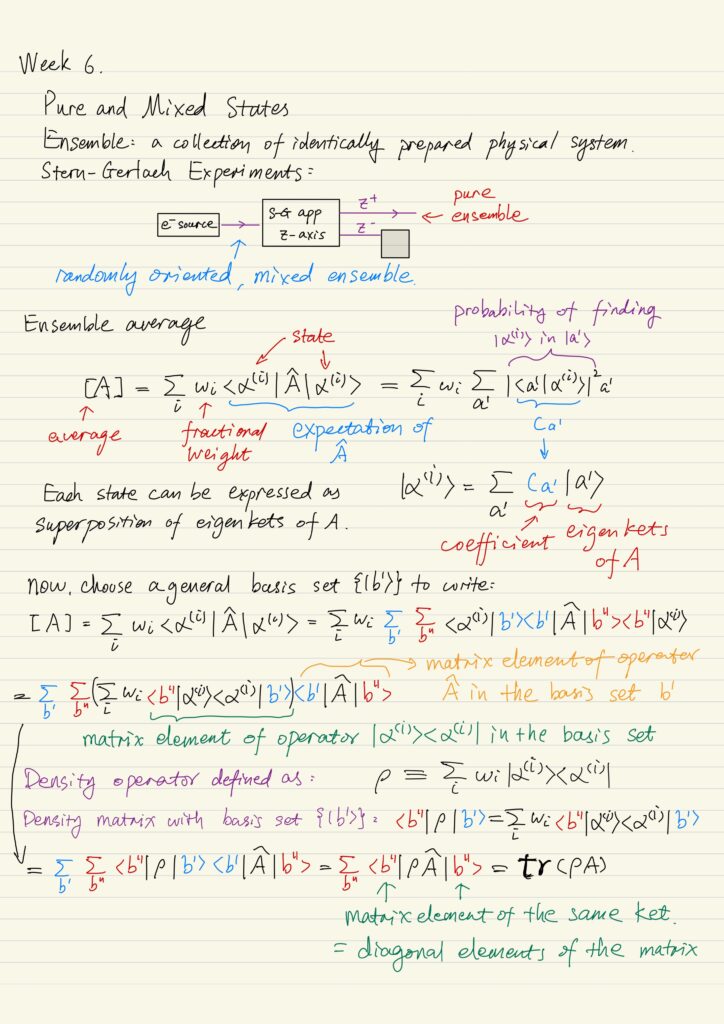 Week 6.
Pure and Mixed States
Ensemble: a collection of identically prepared physical system.
Stern-Gerlach Experiments:
e⁻ source
S-G app
z-axis
z⁺
z⁻
pure
ensemble
randomly oriented, mixed ensemble.
Ensemble average
probability of finding
|α⁽ⁱ⁾> in |a'>
state
[A] = Σ_i w_i <α⁽ⁱ⁾|Â|α⁽ⁱ⁾> = Σ_i w_i Σ_a' |<a'|α⁽ⁱ⁾>|² a'
average
fractional
weight
expectation of
Â
Ca'
Each state can be expressed as
superposition of eigenkets of A.
|α⁽ⁱ⁾> = Σ_a' Ca' |a'>
coefficient
eigenkets
of A
Now, choose a general basis set {|b'>} to write:
[A] = Σ_i w_i <α⁽ⁱ⁾|Â|α⁽ⁱ⁾> = Σ_i w_i Σ_b' Σ_b" <α⁽ⁱ⁾|b'><b'|Â|b"><b"|α⁽ⁱ⁾>
= Σ_b' Σ_b" (Σ_i w_i <b"|α⁽ⁱ⁾><α⁽ⁱ⁾|b'>)<b'|Â|b">
matrix element of operator
Â in the basis set b'
matrix element of operator |α⁽ⁱ⁾><α⁽ⁱ⁾| in the basis set
Density operator defined as: ρ ≡ Σ_i w_i |α⁽ⁱ⁾><α⁽ⁱ⁾|
Density matrix with basis set {|b'>}: <b"|ρ|b'> = Σ_i w_i <b"|α⁽ⁱ⁾><α⁽ⁱ⁾|b'>
= Σ_b' Σ_b" <b"|ρ|b'><b'|Â|b"> = Σ_b" <b"|ρÂ|b"> = tr(ρA)
matrix element of the same ket.
= diagonal elements of the matrix